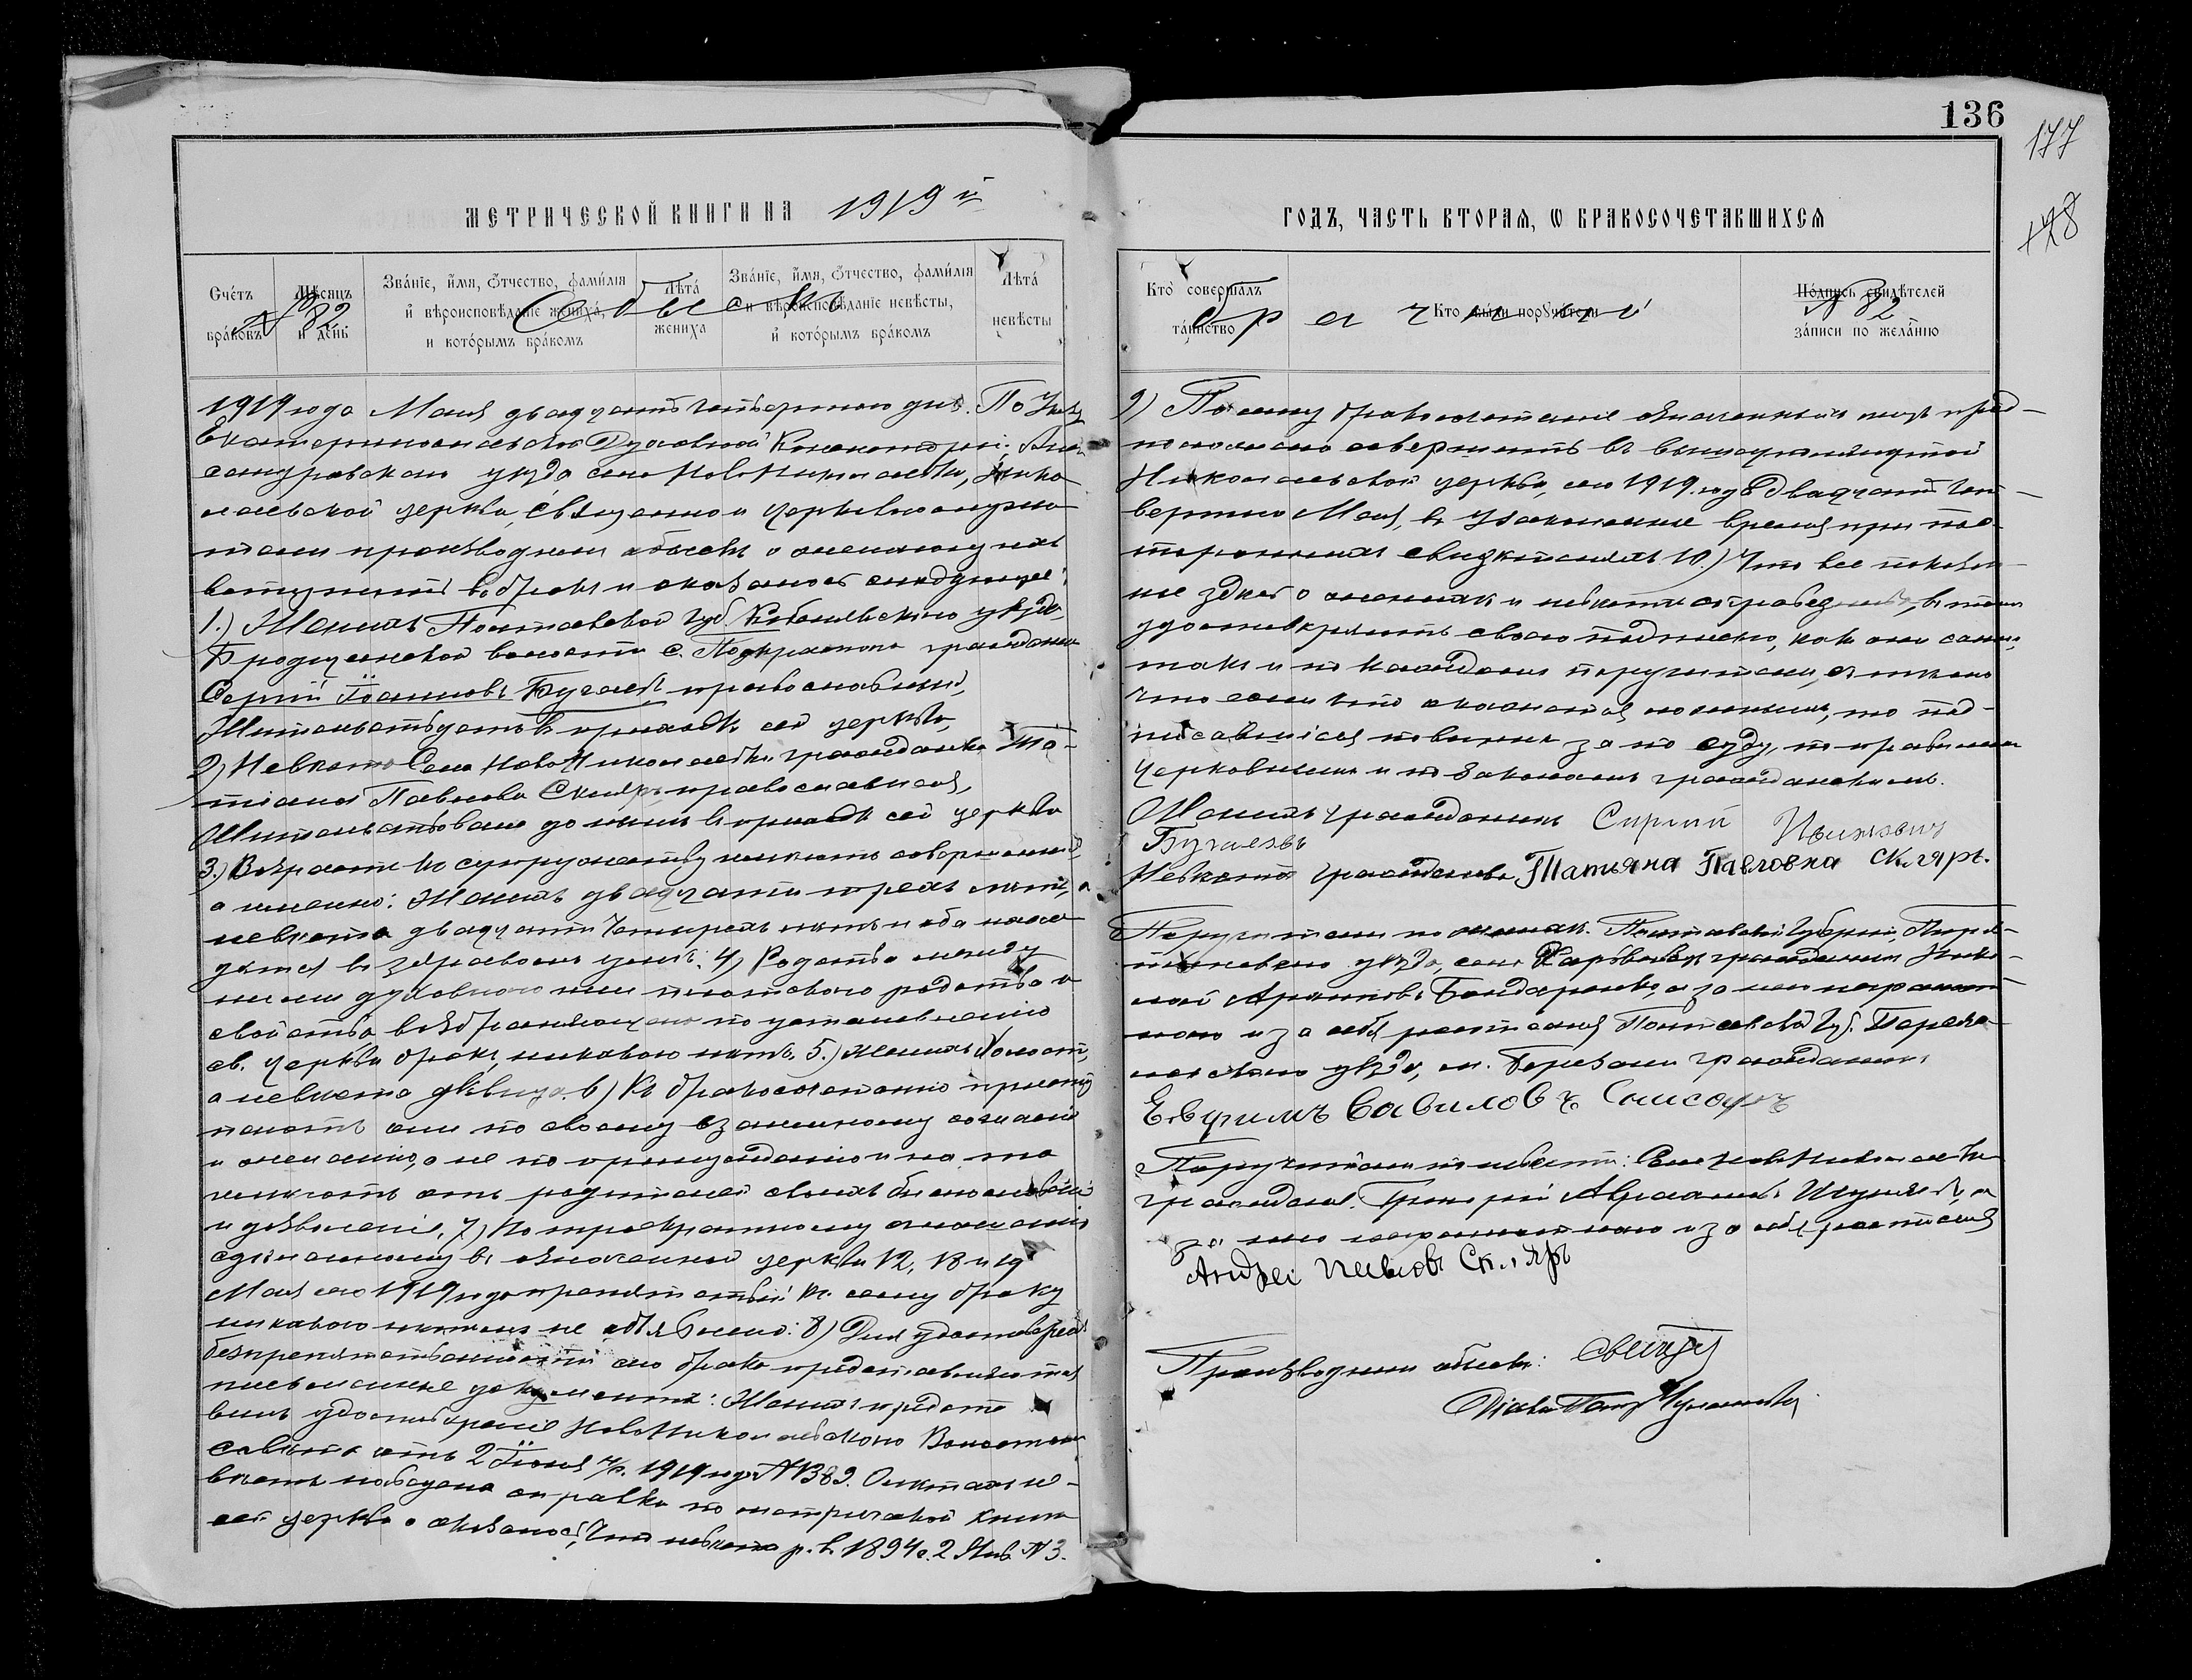 136
177
178
МЕТРИЧЕСКОЙ КНИГИ НА 1919й
ГОДЪ, ЧАСТЬ ВТОРАЯ, Ѡ БРАКОСОЧЕТАВШИХСЯ
Счетъ браковъ
Мѣсяцъ и день
Званіе, имя, отчество, фамилія и вѣроисповѣданіе жениха, и которымъ бракомъ
Лѣта жениха
Званіе, имя, отчество, фамилія и вѣроисповѣданіе невѣсты, и которымъ бракомъ
Лѣта невѣсты
Кто совершалъ таинство
Кто были поручители
Подпись свидѣтелей записи по желанію
№ 82 Обыскъ
брачный № 82
1919 года Мая двадцать четвертого дня. По Указу
Екатеринославской Духовной Консисторіи, Алек
сандровского уѣзда села Ново Николаевки, Нико
лаевской церкви, Священно и Церковнослужи
тели производили обыскъ о желающихъ
вступить въ бракъ и оказалось слѣдующее:
1.) Женихъ Полтавской Губ. Кобелякского уѣзда,
волости с. гражданинъ
Сергій Іоанновъ Бугаевъ православный,
Жительствуетъ въ приходѣ сей церкви,
2) Невѣста Села Ново Николаевки гражданка Та-
тіана Павлова Скляръ православная,
Жительствовала до нынѣ въ приходѣ сей церкви
3.) Возрастъ къ супружеству имѣютъ совершенный,
а именно: Женихъ двадцати трехъ лѣтъ, а
невѣста двадцати четырехъ лѣтъ и оба нахо
дятся въ здравомъ умѣ. 4) Родства между
ними духовного или плотского родства и
свойства, возбраняющаго по установленію
св. церкви бракъ, никакого нѣтъ. 5.) Женихъ холостъ,
а невѣста дѣвица. 6) Къ бракосочетанію присту
паютъ они по своему взаимному согласію
и желанію, а не по принужденію и на то
имѣютъ отъ родителей своихъ благословеніе
и дозволеніе. 7) По троекратному оглашенію
сдѣланному въ означенной церкви 12, 18 и 19
Мая сего 1919 года препятствій къ сему браку
никакого никѣмъ не объявлено: 8) Для удостовѣренія
безпрепятственности сего брака представляются
письменные документы: Женихъ предста
вилъ удостовѣреніе Ново Николаевского Волостного
совѣта отъ 2 Іюня н/с. 1919 года № 389. О лѣтахъ не-
вѣсты наведена справка по метрической книги
сей церкви и оказалось, что невѣста р. въ 1894 г. 2 Янв. № 3.
9) По сему бракосочетаніе означенныхъ лицъ пред-
положено совершить въ вышеупомянутой
Николаевской церкви, сего 1919 года двадцать чет-
вертого Мая, въ узаконенное время при пос-
тороннихъ свидѣтеляхъ 10.) Что все показан-
ное здѣсь о женихѣ и невѣсте справедливо, въ томъ
удостовѣряютъ своею подписью, какъ они сами,
такъ и по каждомъ поручители, съ тѣмъ
что если что окажется ложнымъ, то под-
писавшіеся повинны за то суду, по правиламъ
церковнымъ и по законамъ гражданскимъ.
Женихъ гражданинъ Сиргий Иванович
Бугаевъ
Невѣста гражданка Татьяна Павловна Скляръ.
Поручители по женихѣ. Полтавской Губерніи,
уѣзда, села гражданинъ Нико-
лай Бондаренко, а за него неграмот-
ного и за себя росписался Полтавской Губ. Переяс-
лавского уѣзда, м. Березани гражданинъ
Евфимъ Савиловъ
Поручители по невѣстѣ: Села Ново Николаевки
граждане. Григорій Авраамовъ а
за него неграмотного и за себя росписался
Андреі Павловъ Скляръ
Производили обыскъ: Свящ.
Діаконъ Петръ